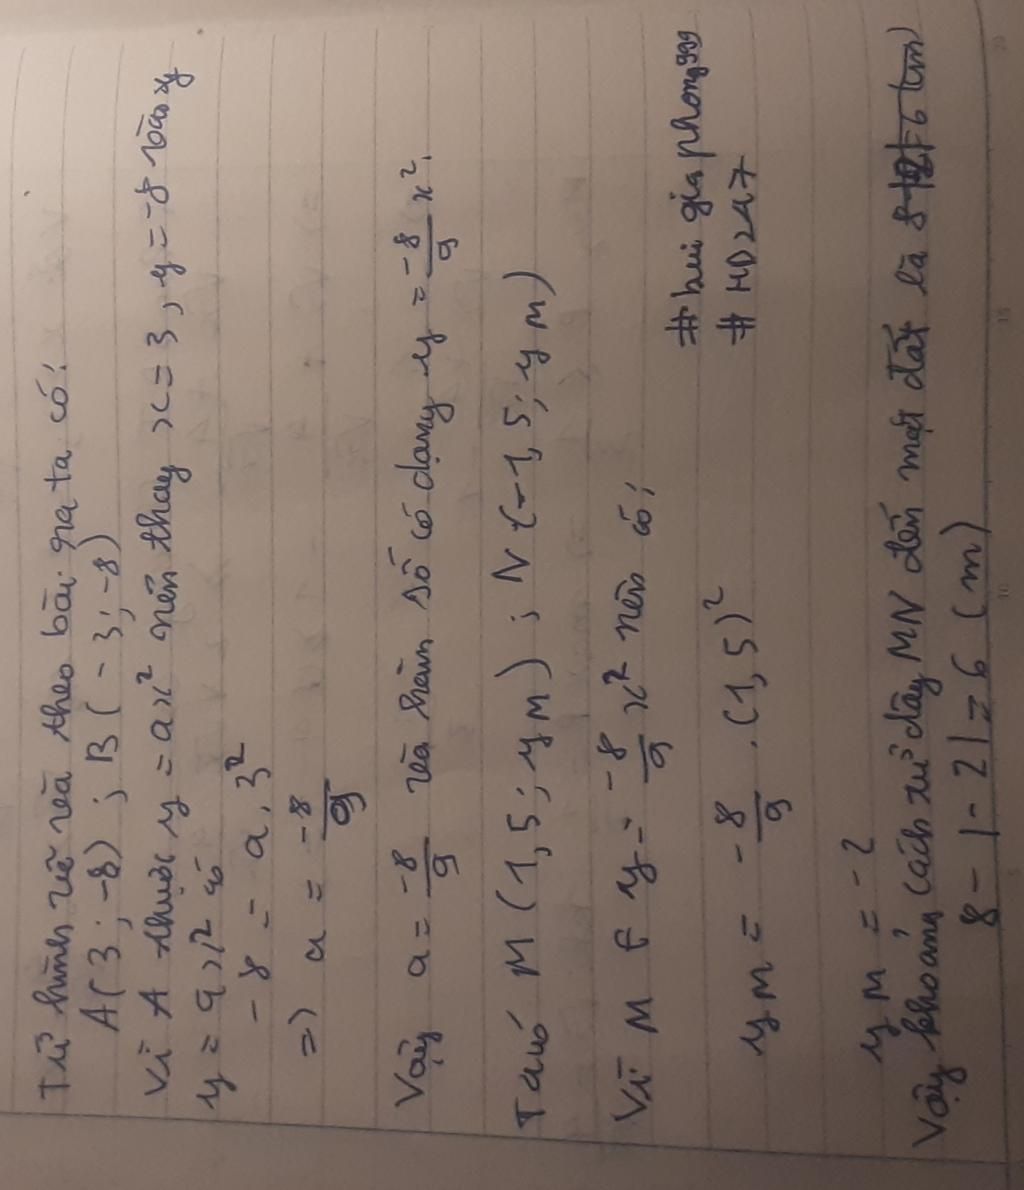 Từ hình vẽ và theo bài ra ta có:
A(3;-8); B(-3;-8)
Vì A thuộc y = ax² nên thay x = 3, y = -8 vào
y = ax² có
-8 = a.3²
=) a = -8/9
Vậy a = -8/9 và hàm số có dạng y = -8/9 x².
Ta có M(1,5; yM); N(-1,5; yM)
Vì M ∈ y = -8/9 x² nên có:
# bui gia phong999
# HD247
yM = -8/9 .(1,5)²
yM = -2
Vậy khoảng cách từ dây MN đến mặt đất là
8 - |-2| = 6 (m)